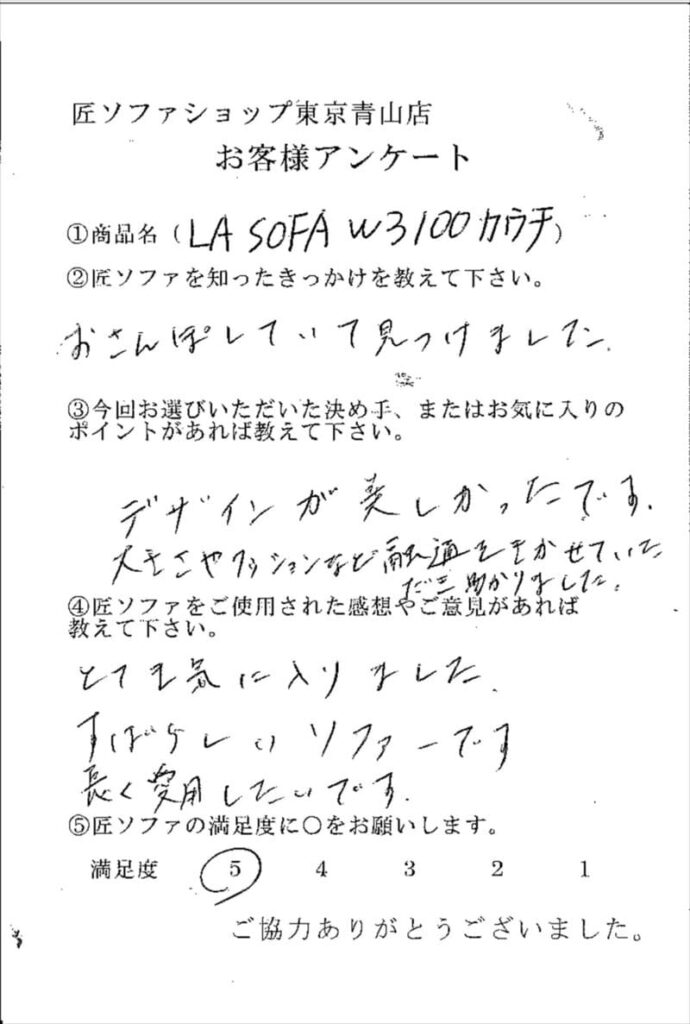 匠ソファショップ東京青山店
お客様アンケート
①商品名（LA SOFA W3100カウチ）
②匠ソファを知ったきっかけを教えて下さい。
おさんぽしていて見つけました.
③今回お選びいただいた決め手、またはお気に入りの
ポイントがあれば教えて下さい。
デザインが美しかったです.
大きさやクッションなど融通をきかせていた
だき助かりました.
④匠ソファをご使用された感想やご意見があれば
教えて下さい。
とても気に入りました.
すばらしいソファーです
長く愛用したいです.
⑤匠ソファの満足度に○をお願いします。
満足度 5 4 3 2 1
ご協力ありがとうございました。